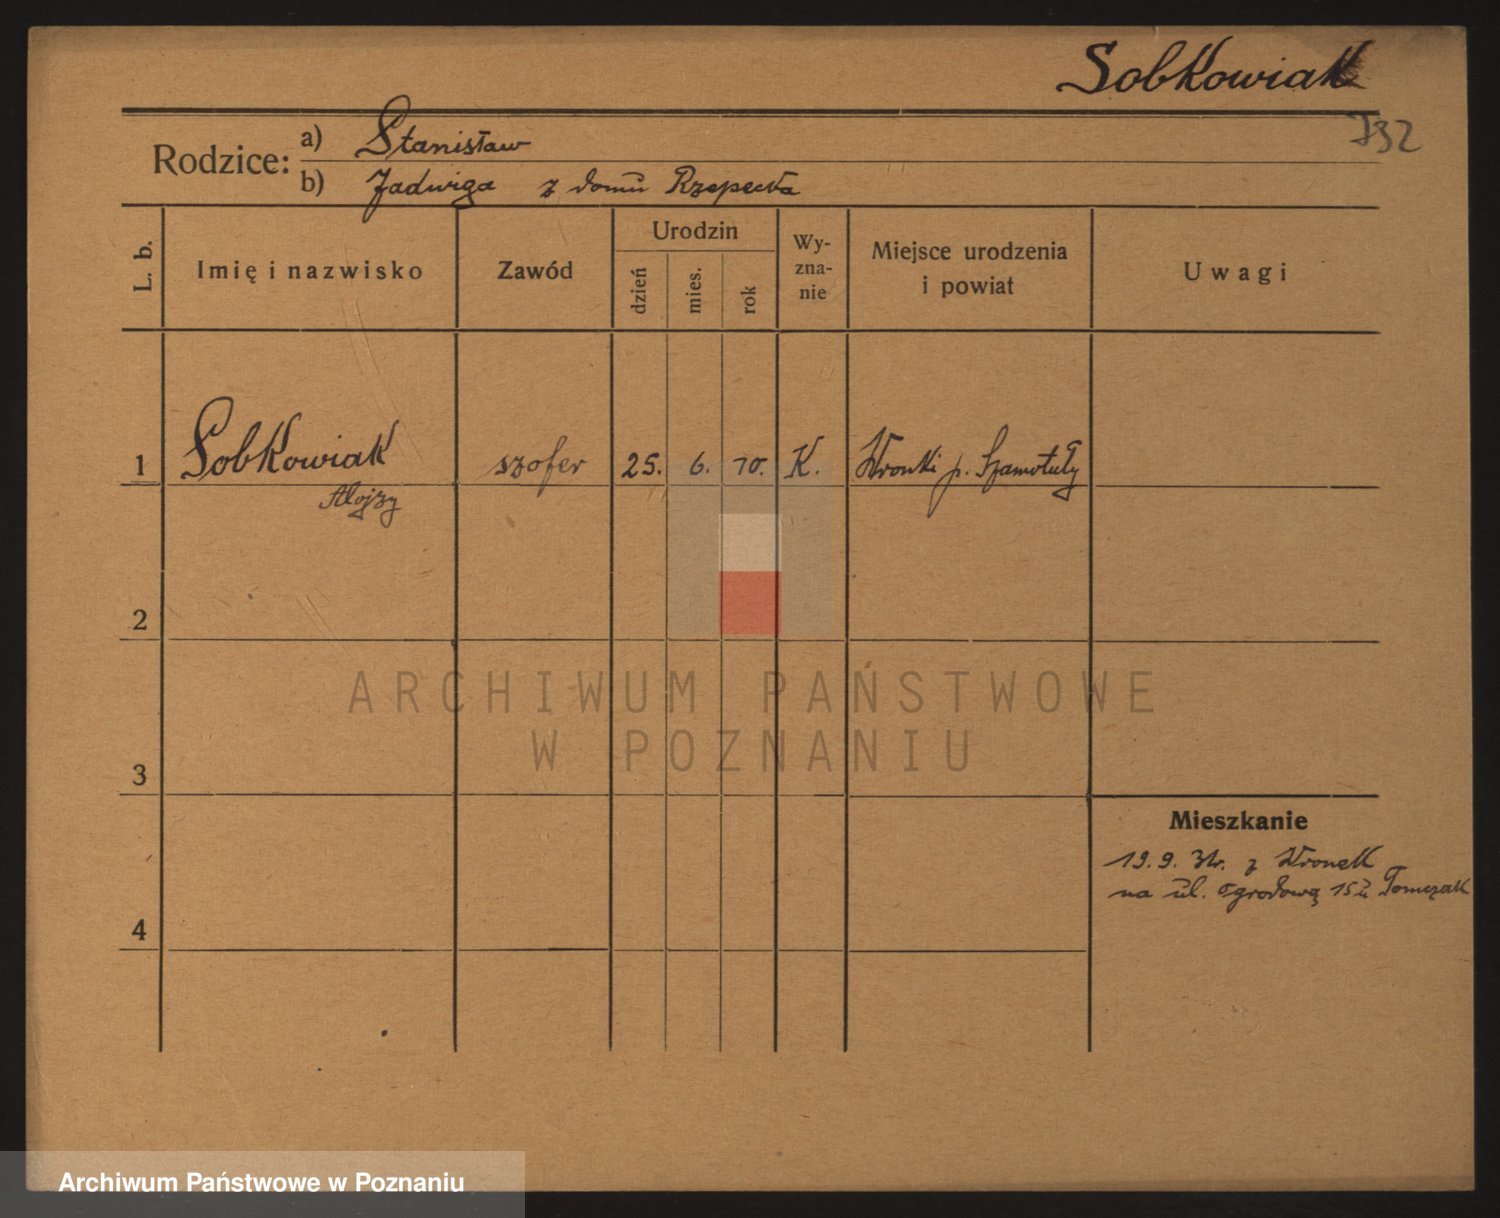 Sobkowiak
Rodzice:
a) Stanisław
b) Jadwiga z domu Rzepecka
L. b.
Imię i nazwisko
Zawód
Urodzin
dzień
mies.
rok
Wy-
zna-
nie
Miejsce urodzenia
i powiat
Uwagi
1 Sobkowiak szofer 25. 6. 10. K. Wronki p. Szamotuły
Alojzy
2
3
4
Mieszkanie
19.9. z Wronek
na ul. Ogrodową 15 Tomczak
ARCHIWUM PAŃSTWOWE
W POZNANIU
Archiwum Państwowe w Poznaniu